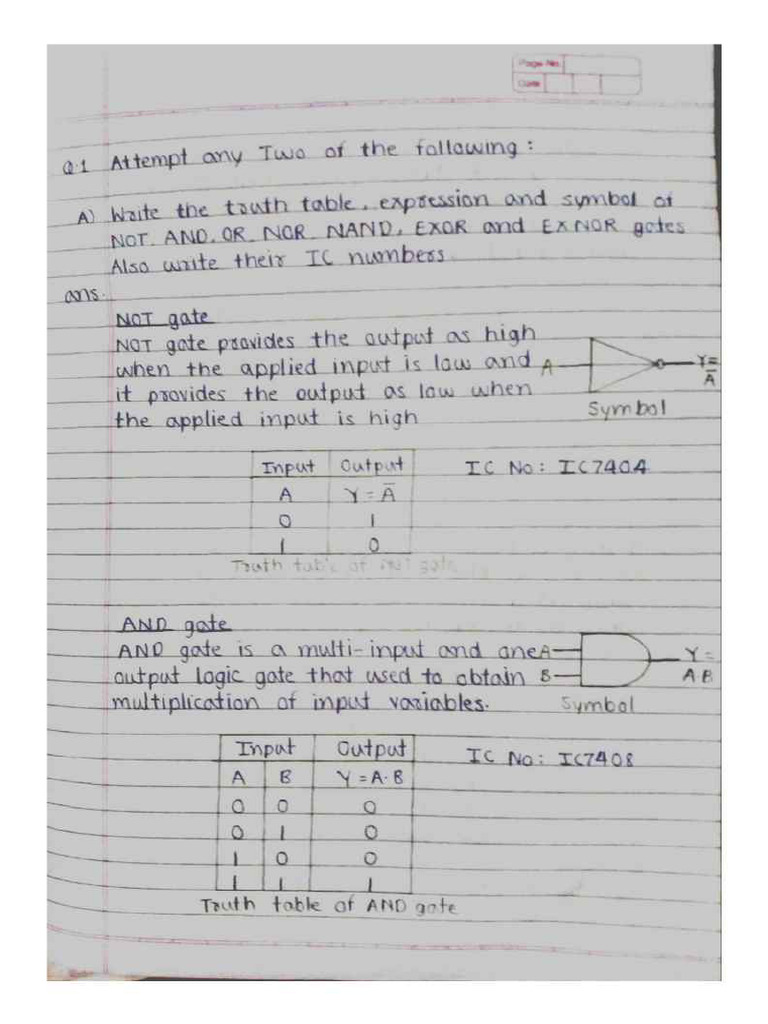 Page No.
Date
Q.1 Attempt any Two of the following :
A) Write the truth table, expression and symbol of
NOT, AND, OR, NOR, NAND, EXOR and EXNOR gates
Also write their IC numbers
ans.
NOT gate
NOT gate provides the output as high
when the applied input is low and
it provides the output as low when
the applied input is high
A Y = A̅
Symbol
Input Output
A Y = A̅
0 1
1 0
IC No : IC7404
Truth table of not gate
AND gate
AND gate is a multi-input and one
output logic gate that used to obtain
multiplication of input variables.
A
B
Y =
A.B
Symbol
Input Output
A B Y = A.B
0 0 0
0 1 0
1 0 0
1 1 1
IC No : IC7408
Truth table of AND gate